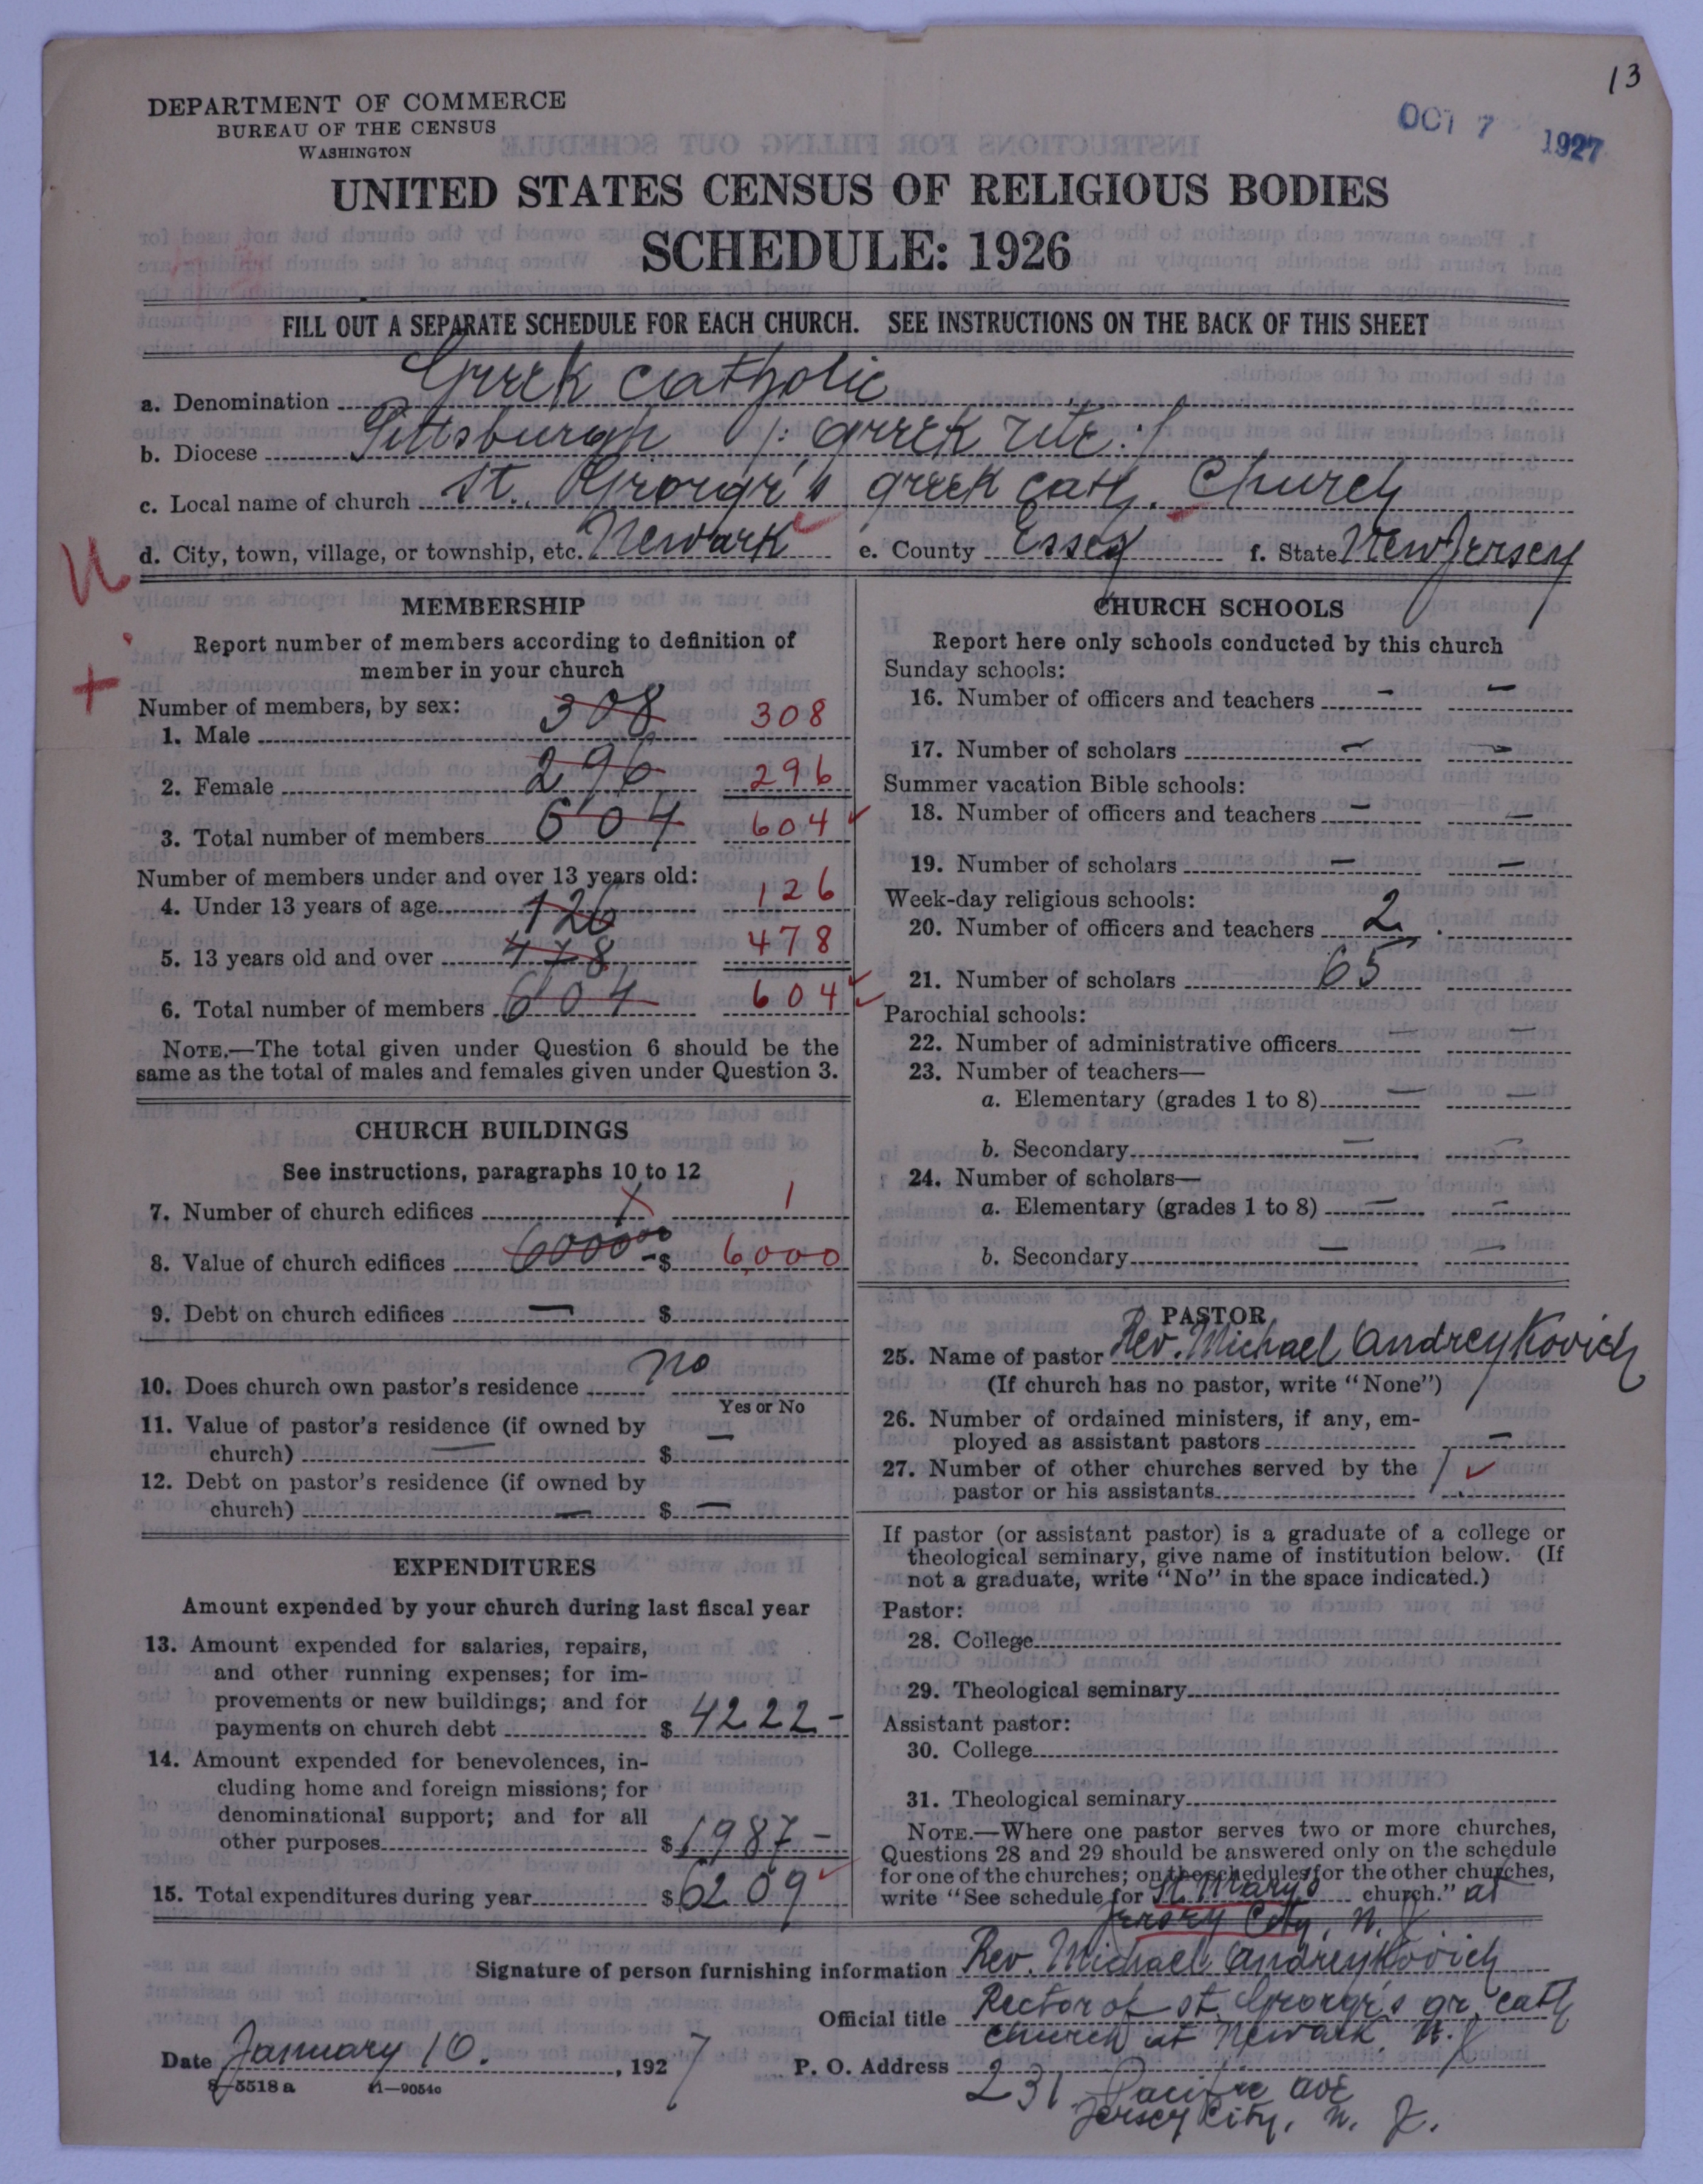 13
OCT 7 1927
DEPARTMENT OF COMMERCE
BUREAU OF THE CENSUS
WASHINGTON
UNITED STATES CENSUS OF RELIGIOUS BODIES
SCHEDULE: 1926
FILL OUT A SEPARATE SCHEDULE FOR EACH CHURCH. SEE INSTRUCTIONS ON THE BACK OF THIS SHEET
a. Denomination Greek Catholic
b. Diocese Pittsburgh /: Greek rite :/
c. Local name of church St. George's Greek Cath. Church
d. City, town, village, or township, etc. Newark e. County Essex f. State New Jersey
MEMBERSHIP
Report number of members according to definition of
member in your church
Number of members, by sex:
1. Male 308 308
2. Female 296 296
3. Total number of members 604 604
Number of members under and over 13 years old:
4. Under 13 years of age 126 126
5. 13 years old and over 478 478
6. Total number of members 604 604
NOTE.—The total given under Question 6 should be the
same as the total of males and females given under Question 3.
CHURCH BUILDINGS
See instructions, paragraphs 10 to 12
7. Number of church edifices 1 1
8. Value of church edifices 6000 00 - $ 6000
9. Debt on church edifices — $
10. Does church own pastor's residence no
Yes or No
11. Value of pastor's residence (if owned by
church) — $ —
12. Debt on pastor's residence (if owned by
church) — $ —
EXPENDITURES
Amount expended by your church during last fiscal year
13. Amount expended for salaries, repairs,
and other running expenses; for im-
provements or new buildings; and for
payments on church debt $ 4222 -
14. Amount expended for benevolences, in-
cluding home and foreign missions; for
denominational support; and for all
other purposes $ 1987 -
15. Total expenditures during year $ 6209
CHURCH SCHOOLS
Report here only schools conducted by this church
Sunday schools:
16. Number of officers and teachers - -
17. Number of scholars - -
Summer vacation Bible schools:
18. Number of officers and teachers — —
19. Number of scholars — —
Week-day religious schools:
20. Number of officers and teachers 2
21. Number of scholars 65
Parochial schools:
22. Number of administrative officers — —
23. Number of teachers—
a. Elementary (grades 1 to 8) — —
b. Secondary — —
24. Number of scholars—
a. Elementary (grades 1 to 8) — —
b. Secondary — —
PASTOR
25. Name of pastor Rev. Michael Andreykovich
(If church has no pastor, write "None")
26. Number of ordained ministers, if any, em-
ployed as assistant pastors —
27. Number of other churches served by the
pastor or his assistants 1
If pastor (or assistant pastor) is a graduate of a college or
theological seminary, give name of institution below. (If
not a graduate, write "No" in the space indicated.)
Pastor:
28. College
29. Theological seminary
Assistant pastor:
30. College
31. Theological seminary
NOTE.—Where one pastor serves two or more churches,
Questions 28 and 29 should be answered only on the schedule
for one of the churches; on the schedules for the other churches,
write "See schedule for St. Mary's church." at
Jersey City, N. J.
Signature of person furnishing information Rev. Michael Andreykovich
Official title Rector of St. George's gr. cath
church at Newark. N. J
Date January 10. , 1927 P. O. Address 231 Pacific Ave
Jersey City, N. J.
8—5518 a 11—9054a